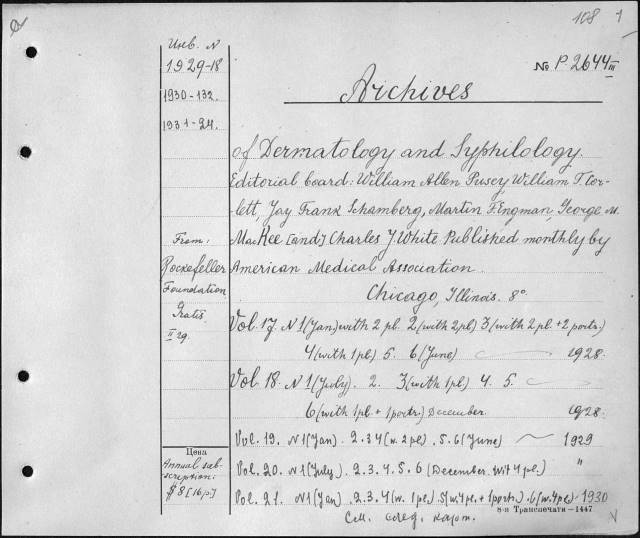 108 1
Инв. N
1929-18
№ P. 2644 III
1930-132.
Archives
1931-24.
of Dermatology and Syphilology.
Editorial board: William Allen Pusey, William T. Cor-
lett, Jay Frank Schamberg, Martin F. Engman, George M.
From:
MacKee [and] Charles J. White Published monthly by
Rockefeller
American Medical Association.
Foundation
Chicago, Illinois. 8°
Gratis.
II 29.
Vol. 17. N 1 (Jan.) with 2 pl. 2 (with 2 pl.) 3 (with 2 pl. + 2 portr.)
4 (with 1 pl.) 5. 6 (June) 1928.
Vol. 18. N 1 (July). 2. 3 (with 1 pl.) 4. 5.
6 (with 1 pl. + 1 portr.) December. 1928.
Vol. 19. N 1 (Jan). 2. 3 4 (w. 2 pl.). 5. 6 (June) 1929
Цена
Annual sub-
scription:
$8 [16 р.]
Vol. 20. N 1 (July). 2. 3. 4. 5. 6 (December. wit 4 pl.) "
Vol. 21. N 1 (Jan). 2. 3. 4 (w. 1 pl.) 5 (w. 4 pl. + 1 portr.) 6 (w. 4 pl.) - 1930
См. след. карт.
8-я Транспечати—1447